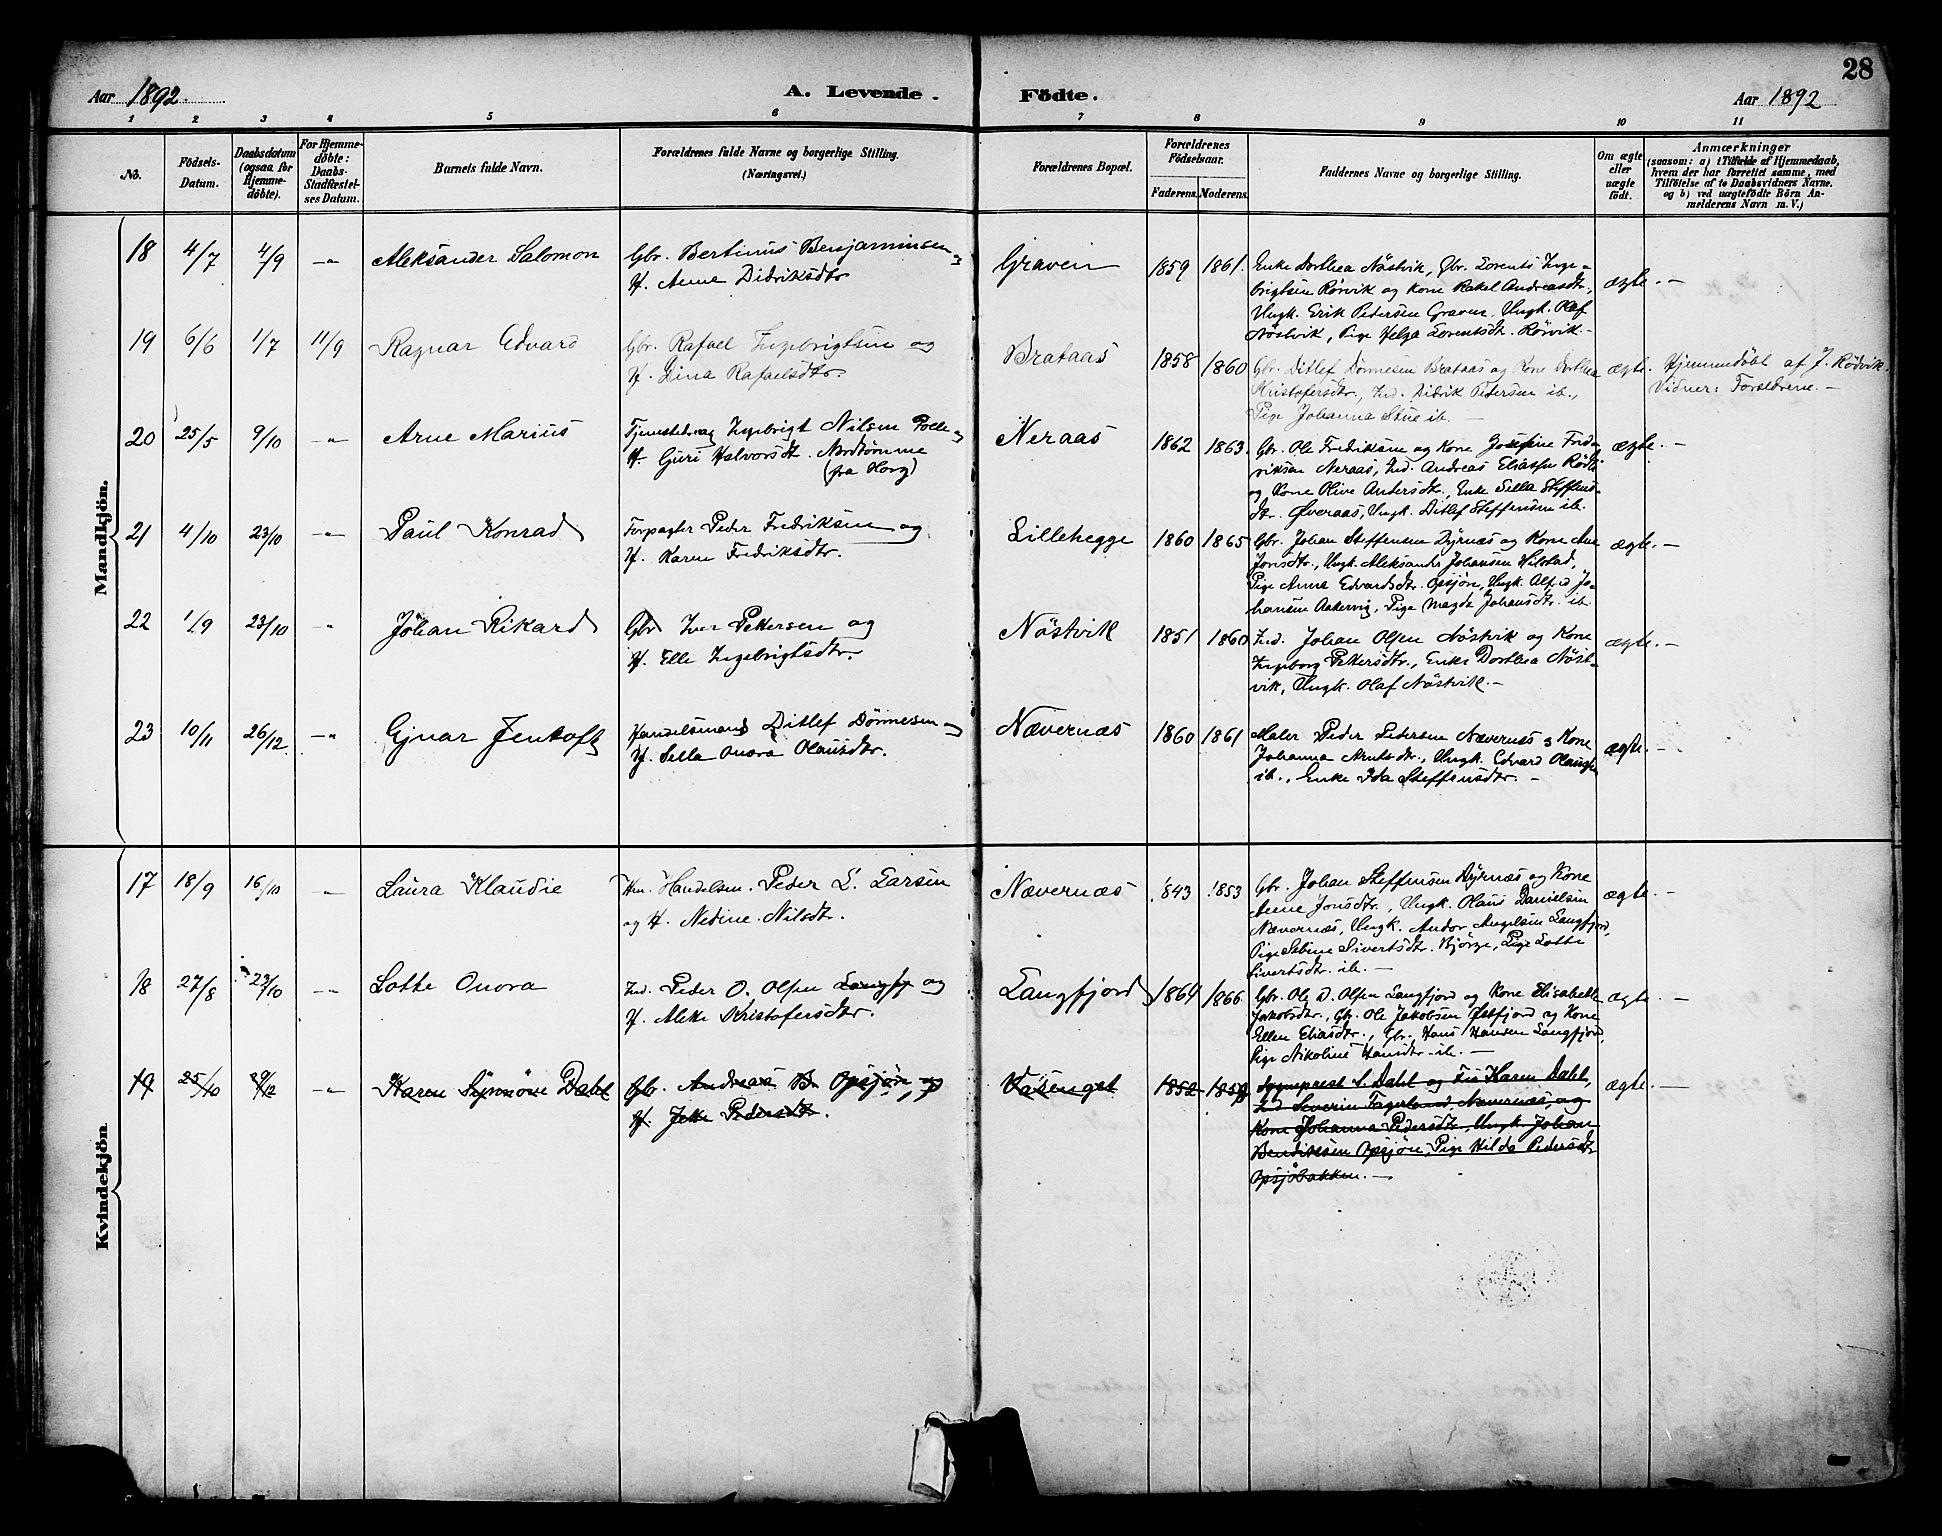 28
Aar 1892. A. Levende. Födte. Aar 1892
1 2 3 4 5 6 7 8 9 10 11
No.
Födsels-
Datum.
Daabsdatum
(ogsaa for
Hjemme-
döbte).
For Hjemme-
döbte:
Daabs-
Stadfæstel-
ses Datum.
Barnets fulde Navn.
Forældrenes fulde Navne og borgerlige Stilling.
(Næringsvei.)
Forældrenes Bopæl.
Forældrenes
Födselsaar.
Faderens. Moderens.
Faddernes Navne og borgerlige Stilling.
Om ægte
eller
uægte
födt.
Anmærkninger
(saasom: a) i Tilfælde af Hjemmedaab,
hvem der har forrettet samme, med
Tilföielse af to Daabsvidners Navne.
og b) ved uægtefödte Börn An-
melderens Navn m. V.)
Mandkjön.
18 4/7 4/9 -"- Aleksander Salomon
Gbr. Bertinus Benjaminsen og
H. Anne Didriksdtr
Graven 1859 1861.
Enke Dorthea Nöstvik, Gbr. Lorents Inge-
brigtsen Rörvik og Kone Rakel Andreasdtr,
Ungk. Erik Petersen Graven, Ungk. Olaf
Nöstvik, Pige Helga Lorentsdt. Rörvik.-
ægte. -
19 6/6 1/7 11/9 Ragnar Edvard
Gbr. Rafael Ingebrigtsen og
H. Dina Rafaelsdtr.
Brataas 1858 1860
Gbr. Ditlef Dönnesen Brataas og Kone Dorthea
Kristofersdtr., Ind. Didrik Pedersen ib.,
Pige Johanna Stue ib. -
ægte.
Hjemmedöbt af J. Rödvik.
Vidner: Forældrene. -
20 25/5 9/10 -"- Arne Marius
Tjenestedreng Ingebrigt Nilsen Polle og
H. Guri Halvorsdt. Nordtömme
(fra Horg)
Neraas 1862 1863.
Gbr. Ole Fredriksen og Kone Josefine Fred-
riksen Neraas, Ind. Andreas Eliassen
og Kone Olive Andersdtr., Enke Silla Steffens-
dtr. Överaas, Ungk. Ditlef Steffensen ib.
ægte. -
21 4/10 23/10 -"- Paul Konrad
Forpagter Peder Fredriksen og
H. Karen Fredriksdtr.
Lillehegge 1860 1865
Gbr. Johan Steffensen Dyrnæs og Kone Ane
Jonsdtr., Ungk. Aleksander Johansen Hilstad,
Pige Anna Edvardsdtr. Opsjön, Ungk. Alfred Jo-
hansen Aakervig, Pige Magda Johansdtr. ib.
ægte. -
22 1/9 23/10 -"- Johan Rikard
Gbr Iver Pettersen og
H. Elle Ingebrigtsdtr.
Nöstvik 1851 1860
Ind. Johan Olsen Nöstvik og Kone
Ingborg Pettersdtr., Enke Dorthea Nöst-
vik, Ungk. Olaf Nöstvik. -
ægte. -
23 10/11 26/12 -"- Ejnar Jentoft
Handelsmand Ditlef Dönnesen og
H. Sella Onora Olausdtr.
Nævernæs 1860 1861
Maler Peder Pedersen Nævernæs og Kone
Johanna Arntsdtr., Ungk. Edvard Olausen
ib., Enke Ida Steffensdtr. -
ægte. -
Kvindekjön
17 18/9 16/10 -"- Laura Klaudie
Handelsm. Peder L. Larsen
og H. Nedine Nilsdtr.
Nævernæs 1843 1853
Gbr. Johan Steffensen Dyrnæs og Kone
Anne Jonsdtr., Ungk. Olaus Danielsen
Nævernæs, Ungk. Andor Angelsen Langfjord,
Pige Sebine Sivertsdtr. Björge, Pige Lotte
Sivertsdtr. ib. -
ægte. -
18 27/8 23/10 -"- Lotte Onora
Ind. Peder O. Olsen Langfj og
H. Alette Kristofersdtr.
Langfjord 1864 1866
Gbr. Ole D. Olsen Langfjord og Kone Elisabeth
Jakobsdtr., Gbr. Ole Jakobsen Östfjord og Kone
Ellen Eliasdtr., Gbr. Hans Hansen Langfjord,
Pige Nikoline Hansdtr. ib. -
ægte. -
19 25/10 -"- Karen Synnöve Dahl
Gbr. Andreas B. Opsjön, og
H. Jette Pedersdtr.
Vasenget 1852 1859
Sogneprest S. Dahl og Frö Karen Dahl,
Ind Severin Fagerland, Nævernæs, og
Kone Johanna Pedersdtr, Ungk. Johan
Bendiksen Opsjön, Pige Hilda Pedersdtr
Opsjöbakken. -
ægte. -